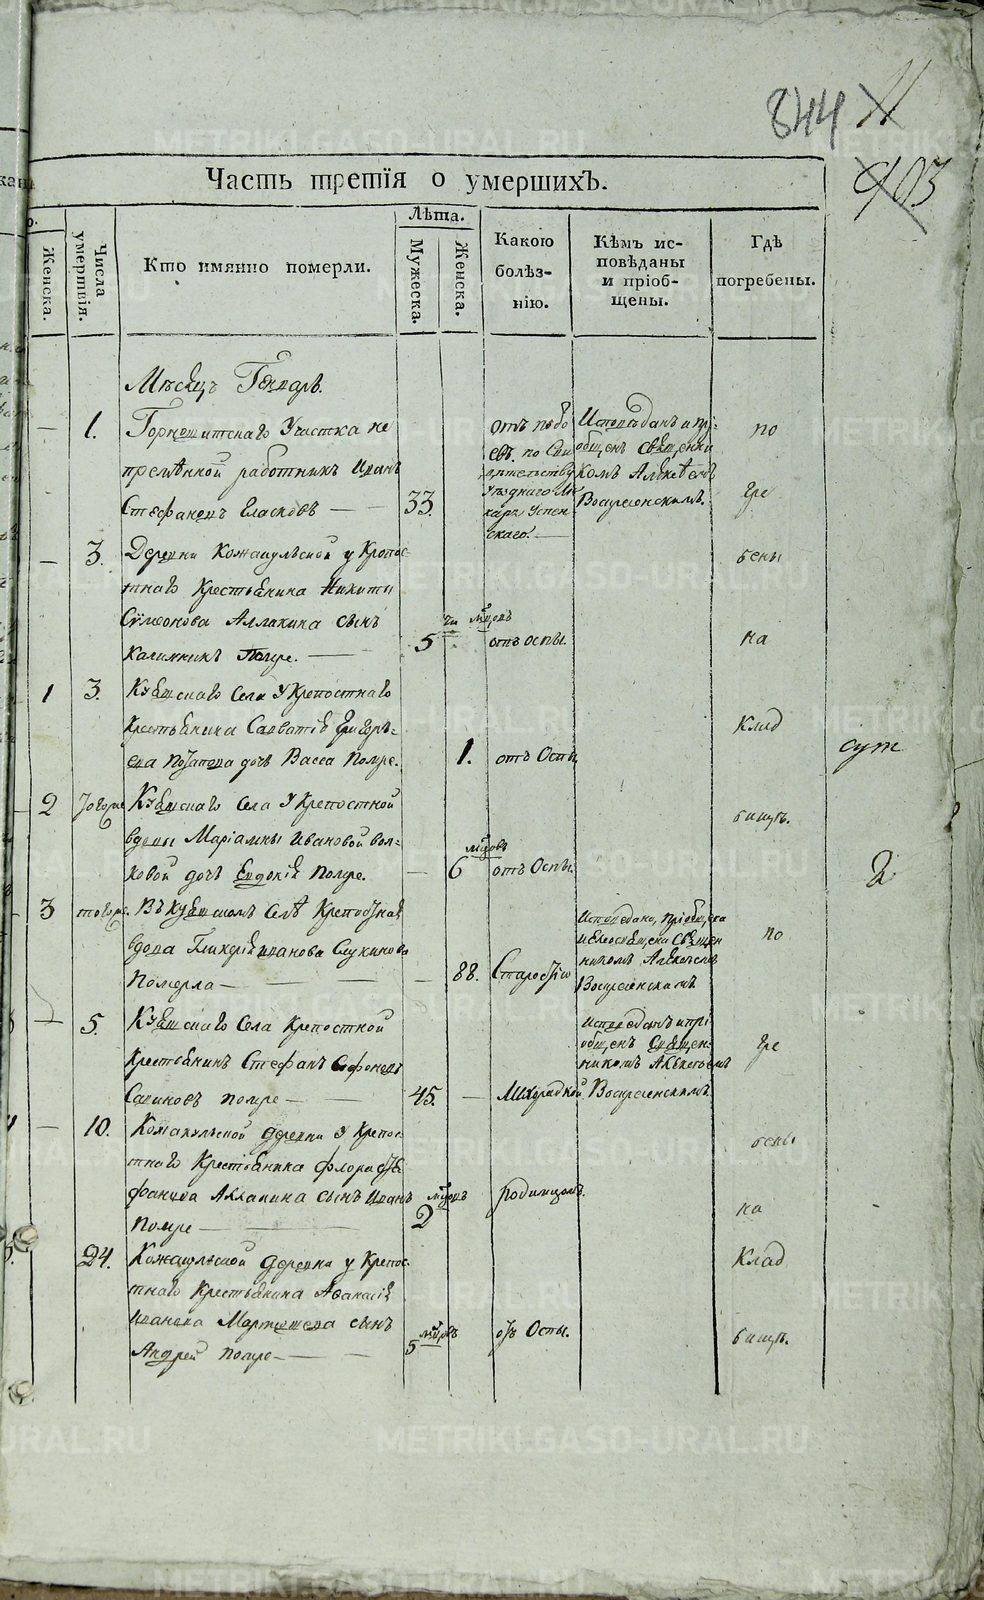 844 11
403
Часть третія о умершихъ.
Женска.
Числа умертвія.
Кто имянно померли.
Лѣта.
Мужеска.
Женска.
Какою болѣз-
нію.
Кѣмъ ис-
повѣданы
и пріоб-
щены.
Гдѣ
погребены.
Мѣсяцъ Генварь.
1. Горнощитскаго Участка не
премѣнной работникъ Иванъ
Стефановъ — 33.
отъ побо
евъ. по сви
дѣтельству
уѣзднаго лѣ
каря Успен
скаго.
Исповѣданъ и прі-
общенъ священни
комъ Алексѣемъ
Воскресенскимъ.
3. Деревни Кожакульской у Крепос-
тнаго Крестьянина Никиты
Сумеонова Аллакина сынъ
Калинникъ Помре. — 5 мѣсяцъ отъ оспы.
1 3. Куяшскаго Села у Крепостнаго
Крестьянина Савватія Григорь-
ева дочь Васса Помре. 1. отъ Оспы
2 Тогоже Куяшскаго Села у Крепостной
вдовы Маріамны Ивановой Вол-
ковой дочь Евдокія Помре. — 6 мѣсяцовъ отъ Оспы.
3 тогоже. Въ Куяшскомъ Селѣ Крепостная
вдова Гликерія Иванова
Померла — 88. Старостію
Исповѣдана, пріобщена
и елеосвящена Священ
никомъ Алексѣемъ
Воскресенскимъ
5. Куяшскаго Села Крепостной
Крестьянинъ Стефанъ
Савиновъ помре — 45. — Лихорадкой
Исповѣданъ и прі
общенъ Священ-
никомъ Алексѣемъ
Воскресенскимъ.
10. Кожакульской деревни у Крепос-
тнаго Крестьянина Флора
Аллакина сынъ Иванъ
Помре — 2 родимцомъ.
24. Кожакульской деревни у Крепос-
тнаго Крестьянина Афанасія
Иванова сынъ
Андрей помре — 5 мѣсяцовъ отъ Оспы.
по
гре
бены
на
Клад
бищѣ.
по
гре
бены
на
Клад
бищѣ.
2
METRIKI.GASO-URAL.RU